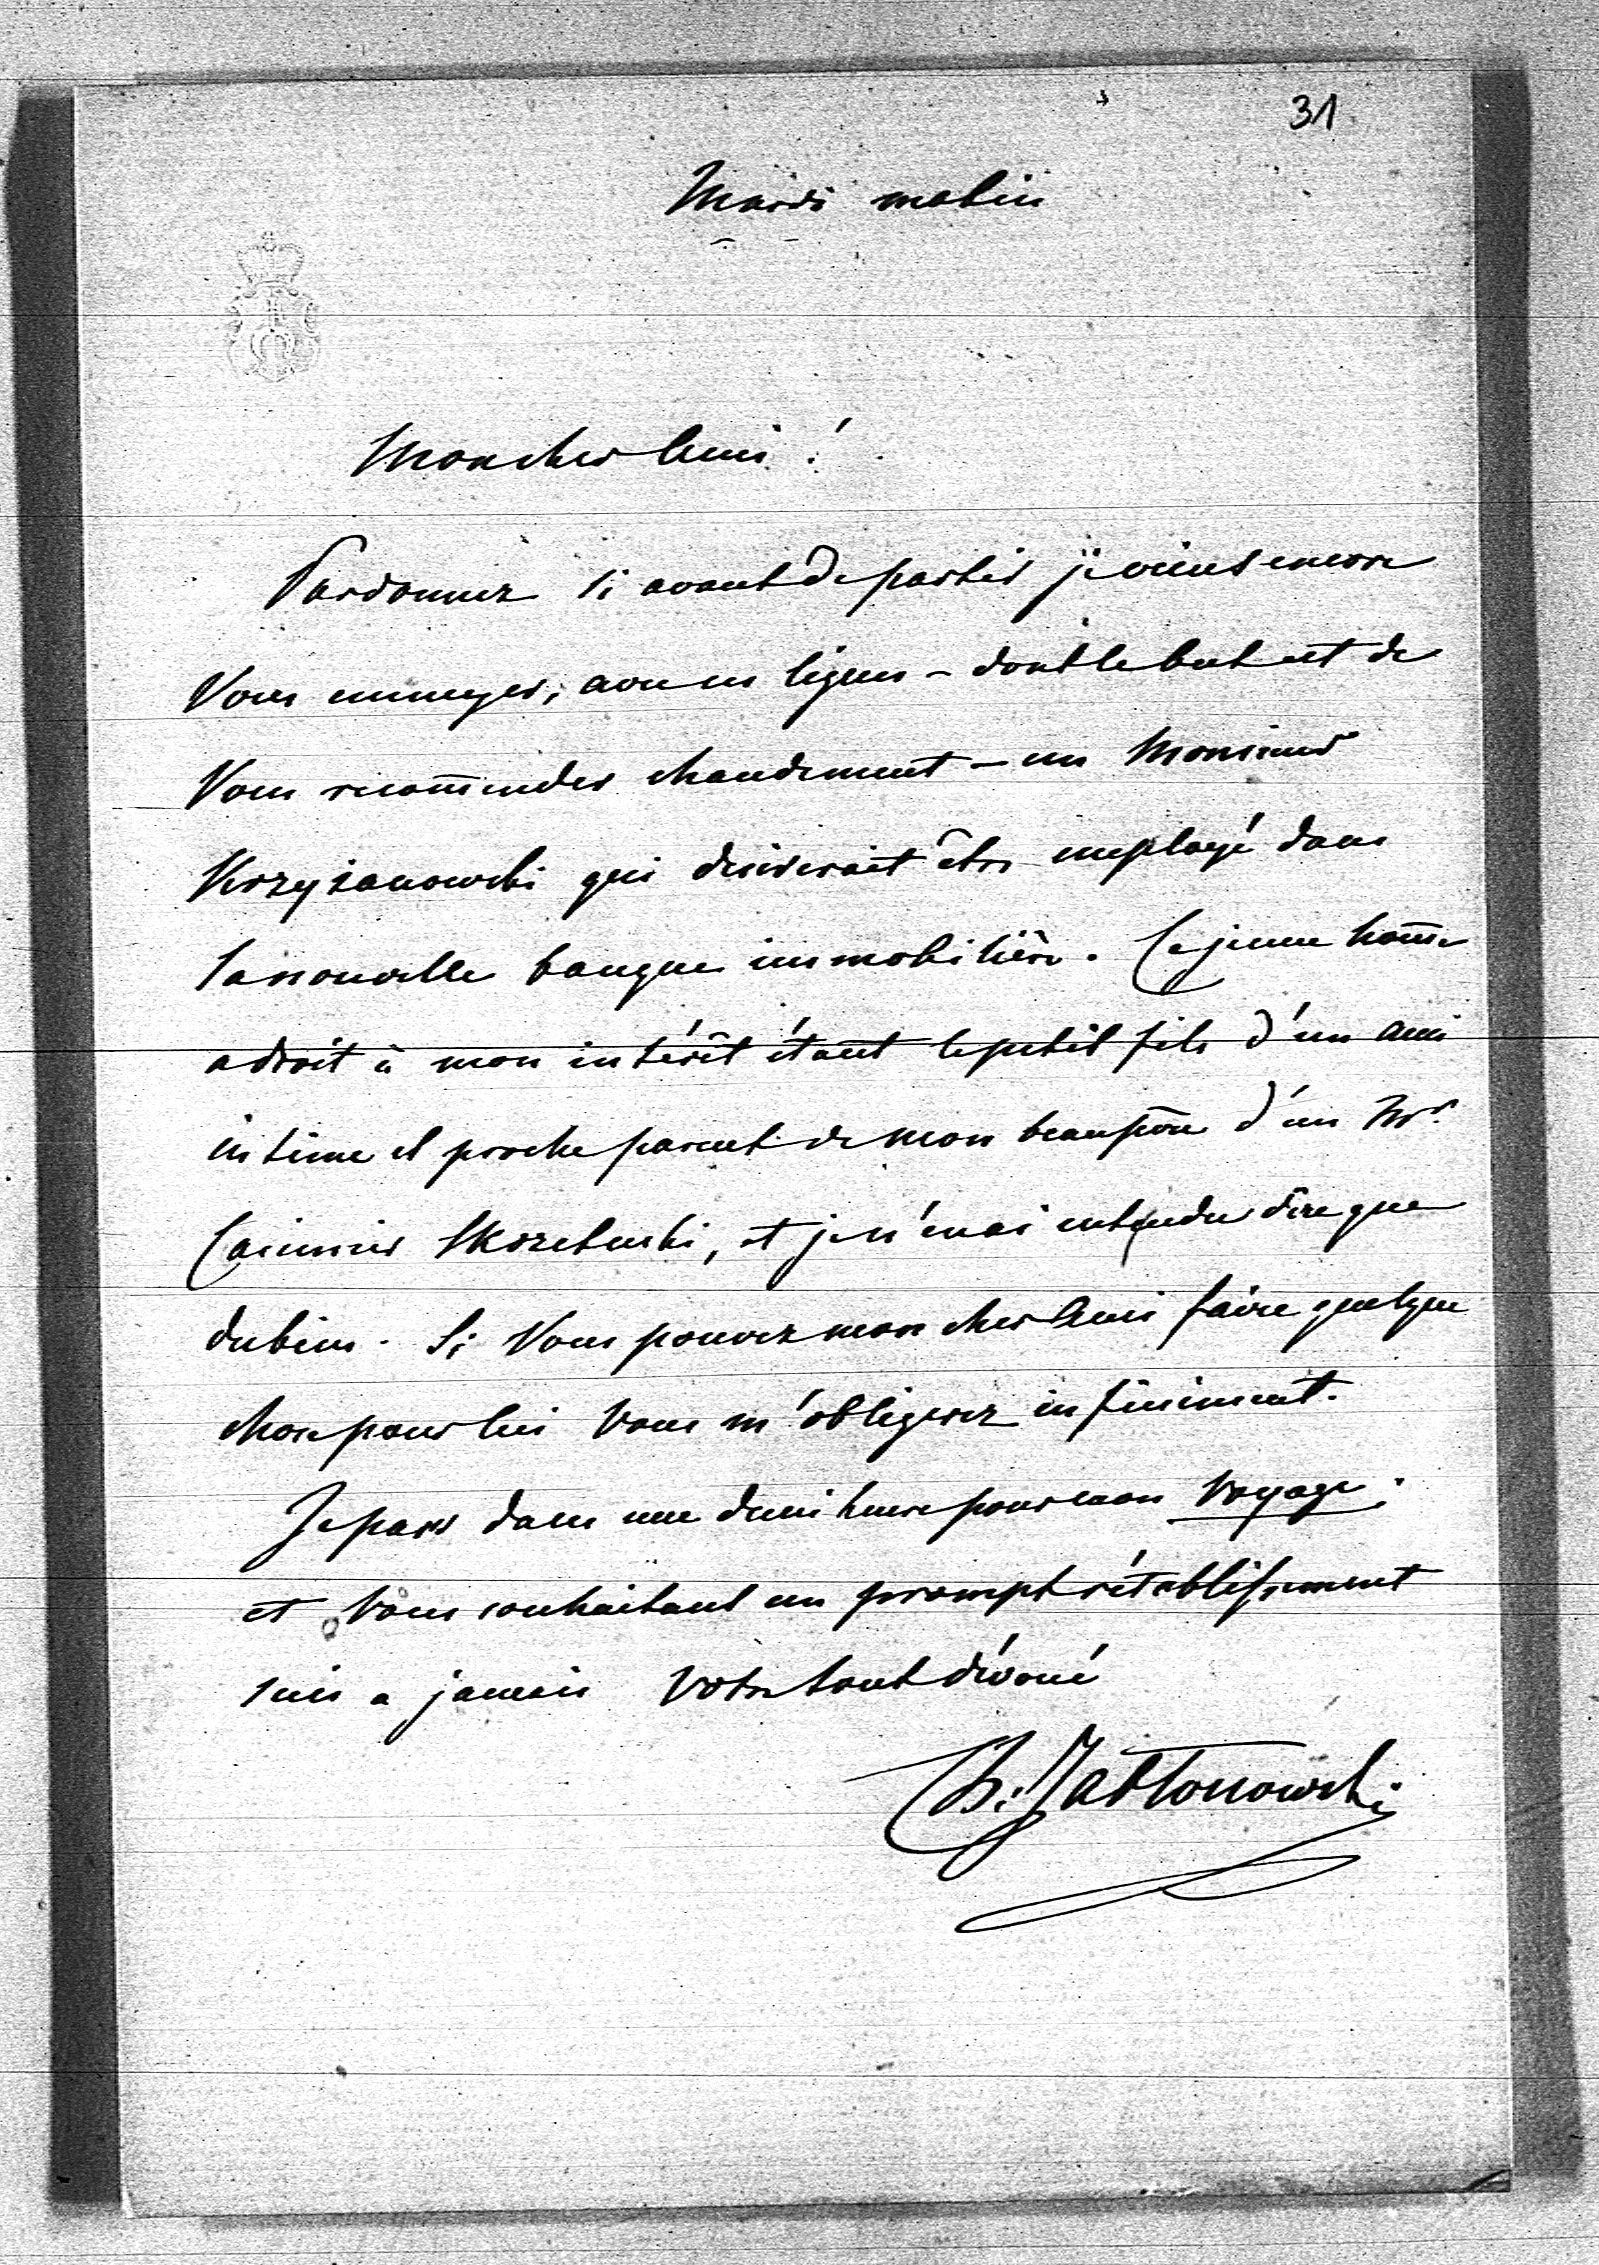 31
Mardi matin
Mon cher Ami!
Pardonnez si avant de partir je viens encore
Vous ennuyer; avec ces lignes – dont le but est de
Vous recom̄ender chaudement – un Monsieur
Krzyżanowski qui desirerait être employé dans
la nouvelle banque immobilière. Ce jeune hom̄e
a droit à mon intérêt étant le petit fils d'un ami
intime et proche parent de mon beaupère d'un Mr.
Casimir, et je n'en ai entendu dire que
du bien. Si Vous pouvez mon cher Ami faire quelque
chose pour lui Vous m'obligerez infiniment.
Je pars dans une demi heure pour mon Voyage;
et Vous souhaitant un prompt rétablissement
suis a jamais Votre tout dévoué
Jabłonowski